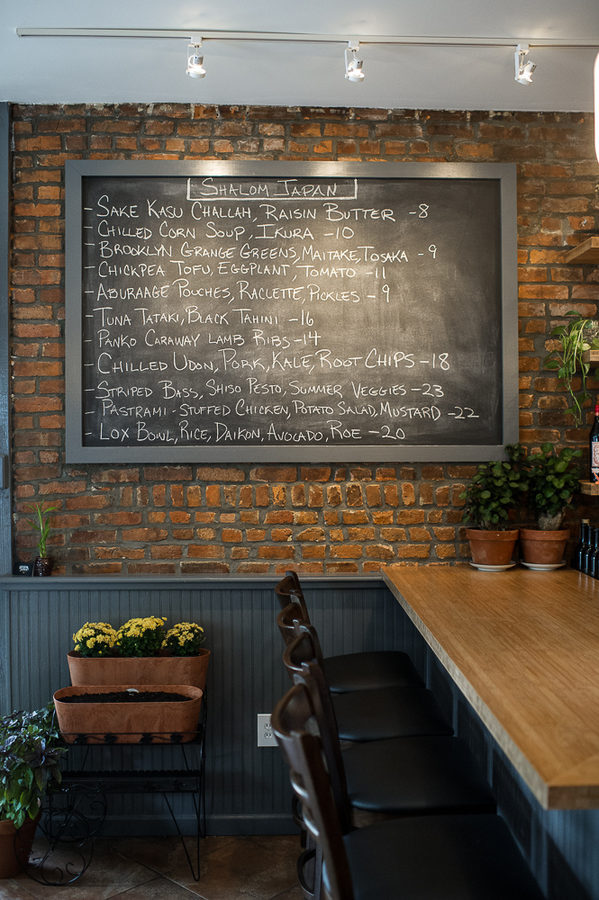 SHALOM JAPAN
- SAKE KASU CHALLAH, RAISIN BUTTER - 8
- CHILLED CORN SOUP, IKURA - 10
- BROOKLYN GRANGE GREENS, MAITAKE, TOSAKA - 9
- CHICKPEA TOFU, EGGPLANT, TOMATO - 11
- ABURAAGE POUCHES, RACLETTE, PICKLES - 9
- TUNA TATAKI, BLACK TAHINI - 16
- PANKO CARAWAY LAMB RIBS - 14
- CHILLED UDON, PORK, KALE, ROOT CHIPS - 18
- STRIPED BASS, SHISO PESTO, SUMMER VEGGIES - 23
- PASTRAMI - STUFFED CHICKEN, POTATO SALAD, MUSTARD - 22
- LOX BOWL, RICE, DAIKON, AVOCADO, ROE - 20